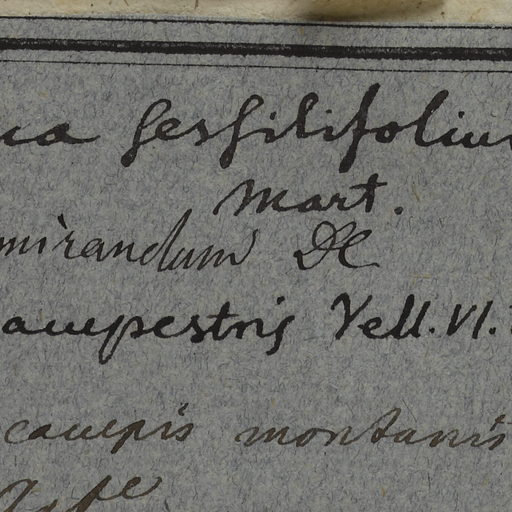 ua sessilifoliu
Mart.
mirandum DC
ampestris Vell. VI.
campis montanis